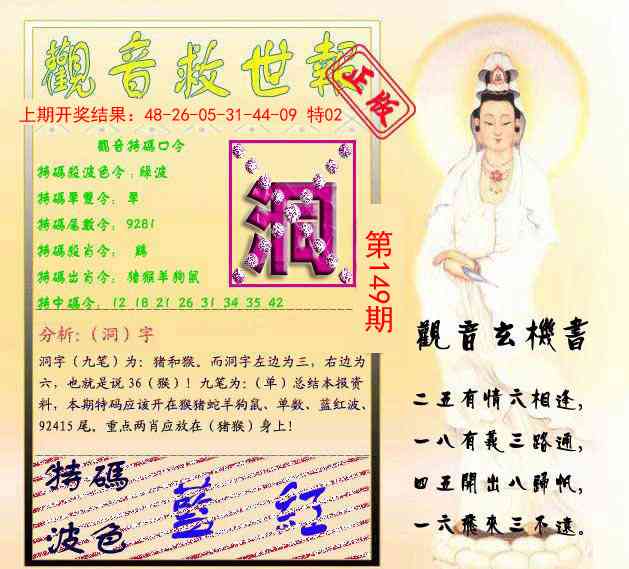 觀音救世報
正版
上期开奖结果：48-26-05-31-44-09 特02
觀音特碼口令
特碼殺波色令：綠波
特碼單雙令：單
特碼尾數令：9281
特碼殺肖令：鷄
特碼出肖令：猪猴羊狗鼠
特中碼令：12 18 21 26 31 34 35 42
洞
第149期
分析:（洞）字
洞字（九笔）为：猪和猴。而洞字左边为三，右边为
六，也就是说 36（猴）！九笔为：（单）总结本报资
料，本期特码应该开在猴猪蛇羊狗鼠、单数、蓝红波、
92415 尾。重点两肖应放在（猪猴）身上！
特碼
波色
藍 紅
觀音玄機書
二五有情六相逢，
一八有義三路通，
四五開出八歸帆，
一六飛來三不遠。